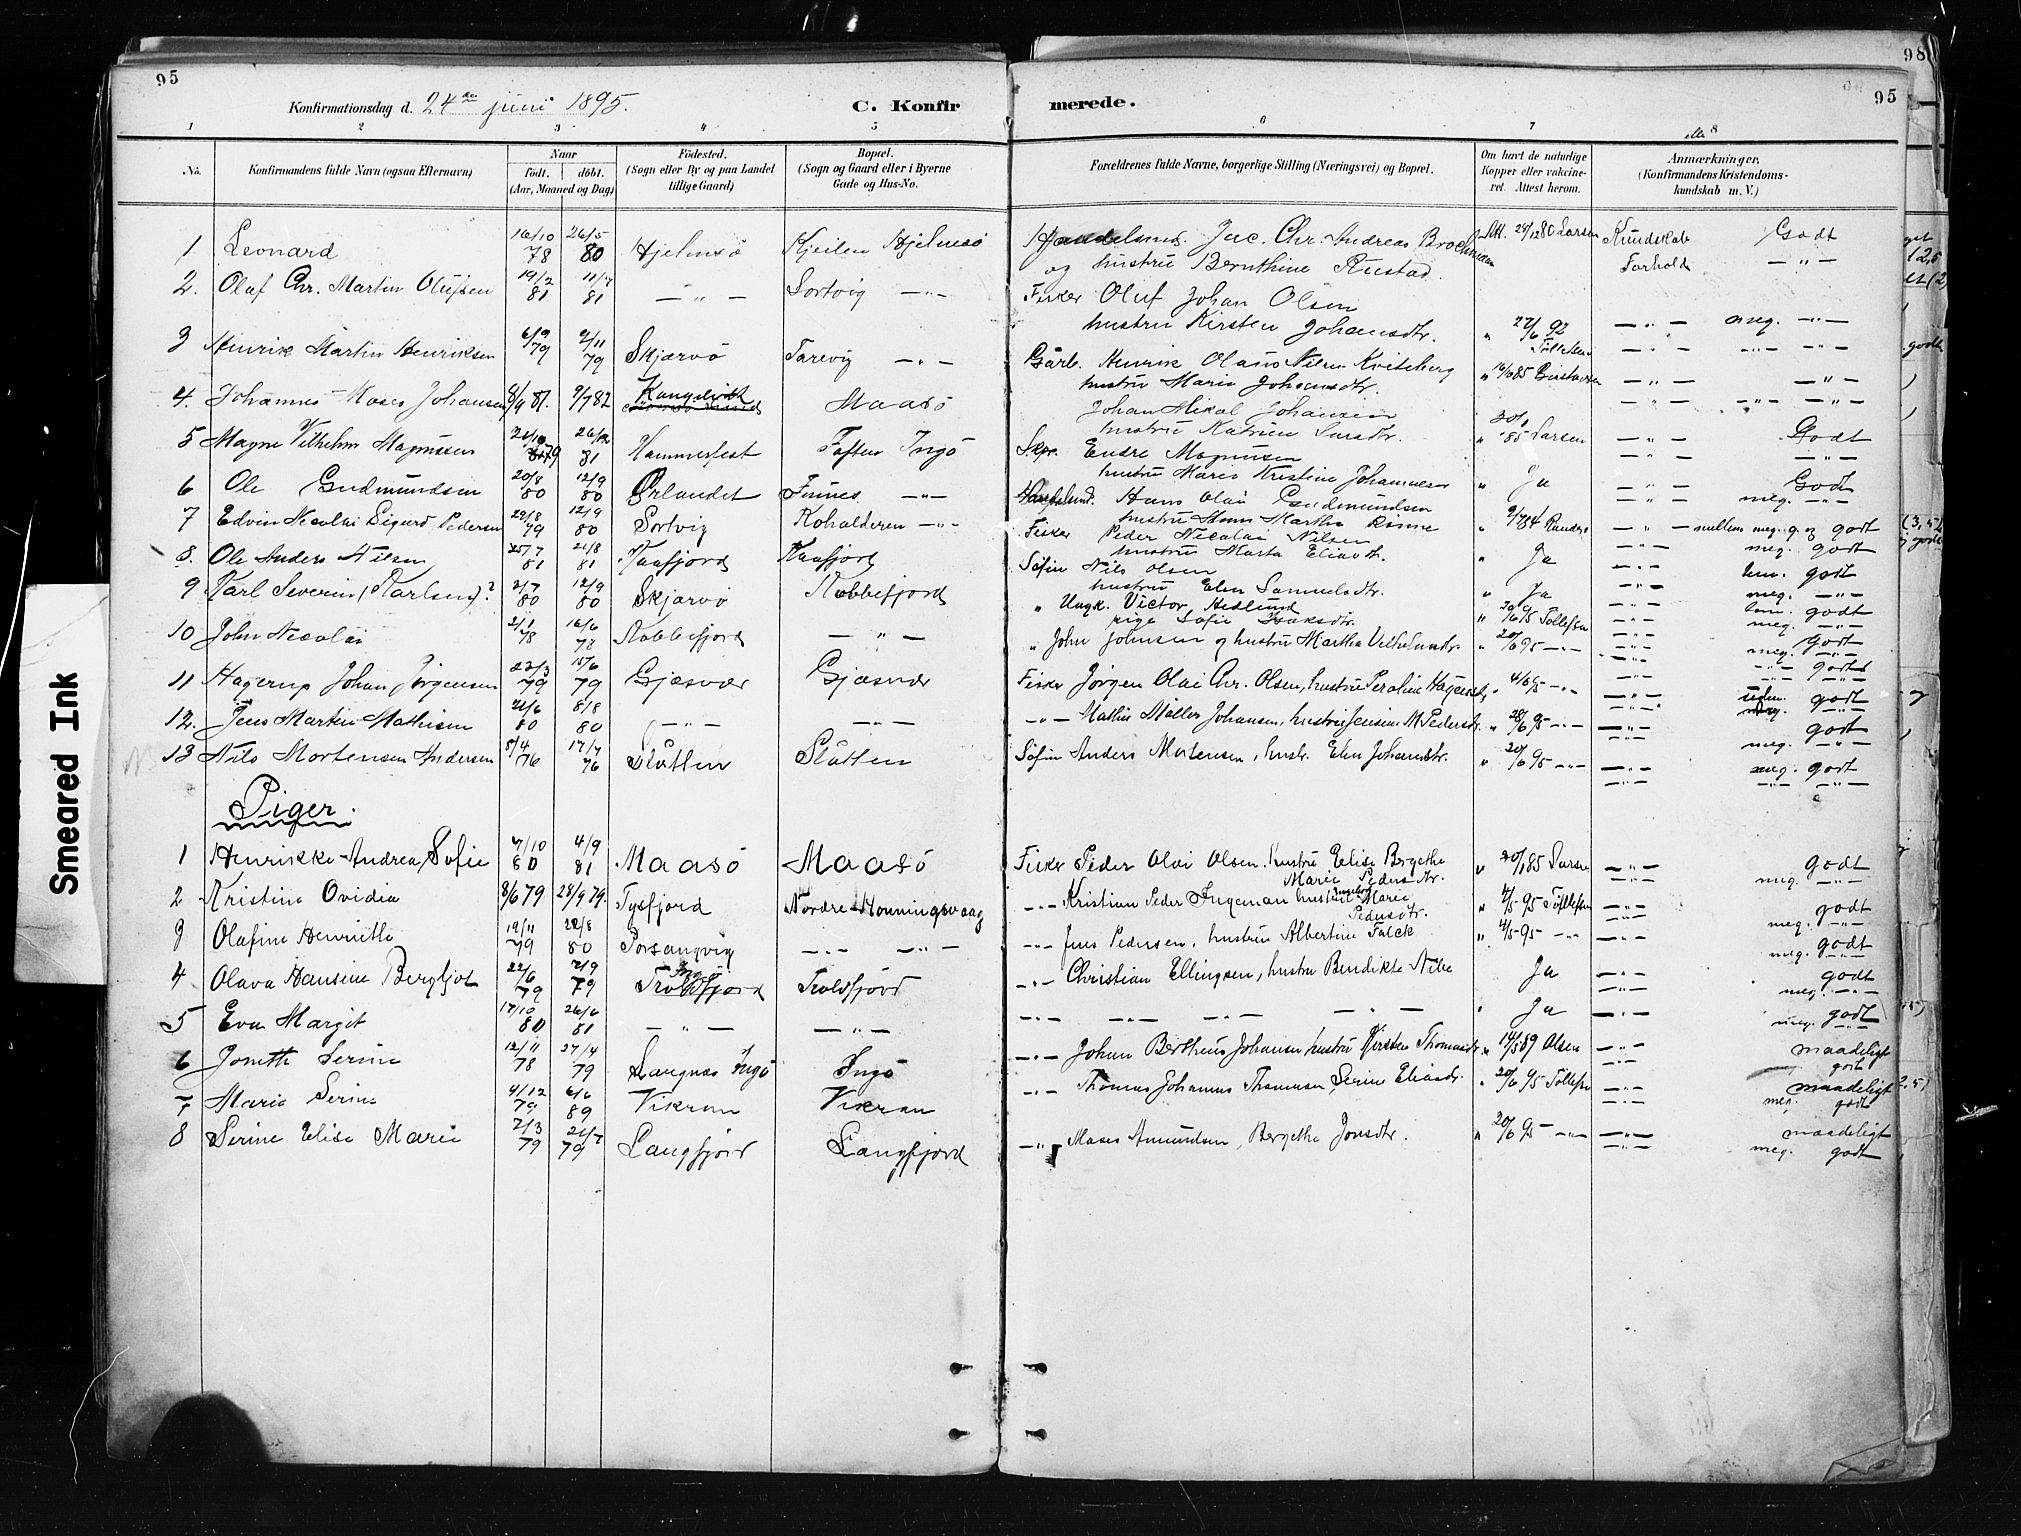 95
Konfirmationsdag d. 24de juni 1895.
C. Konfirmerede.
95
98
1 2 3 4 5 6 7 8
No.
Konfirmandens fulde Navn (ogsaa Efternavn)
Naar
født. døbt.
(Aar, Maaned og Dag)
Fødested.
(Sogn eller By og paa Landet
tillige Gaard)
Bopæl.
(Sogn og Gaard eller i Byerne
Gade og Hus-No.
Forældrenes fulde Navne, borgerlige Stilling (Næringsvei) og Bopæl.
Om havt de naturlige
Kopper eller vakcine-
ret. Attest herom.
Anmærkninger.
(Konfirmandens Kristendoms-
kundskab m. V.)
1 Leonard 16/10 78 26/5 80 Hjelmsö Kjeilen Hjelmsö Handelsmd. Jac. Chr. Andreas Brochmann Att. 29/12 80 Larsen Kundskab Godt
og hustru Bernthine Rustad. Forhold — " —
2. Olaf Chr. Martin Olufsen 19/2 81 11/7 81 — " — Sortvig — " — Fisker Oluf Johan Olsen
hustru Kirsten Johansdtr. " 27/6 92 Tollefsen — " — meg. — " —
3 Henrik Martin Henriksen 6/9 79 2/11 79 Skjærvö Tarevig — " — Gårb. Henrik Olaus Nilsen Kviteberg
hustru Marie Johansdtr. " 16/10 85 Gustavsen — " — — " —
4. Johannes Moses Johansen 8/9 81. 9/7 82 Maasö Johan Mikal Johansen
hustru Katrine Larsdtr. " 85 Larsen — " — Godt
5 Magne Vilhelm Magnussen 81 Hammerfest Tuften Ingö Skpr. Endre Magnusen — " —
hustru Maria Kristine Johannesen " Ja — " — Godt
6 Ole Gudmundsen 20/8 80 12/9 80 Örlandet Finnes — " — Handelsmd. Hans Olai Gudmundsen meg. — " —
7 Edvin Nicolai Sigurd Pedersen 29/8 79 12/9 80 Sortvig Koholderen — " — Fisker Peder Nicolai Nilsen " 9/7 84 — " — mellem meg. g. og godt
hustru Marta Eliasdtr.
8. Ole Anders Nilsen 25/7 81 21/8 81 Kaafjord Kaafjord Söfin Nils Olsen " Ja — " — meg. godt
hustru Elen Samuelsdtr.
9 Karl Severin (Karlsen)? 2/7 80 12/9 80 Skjærvö Kobbefjord " Ungk. Victor Hedlund " Ja
pige Sofie Isaksdtr. " 20/6 95 Tollefsen
10 John Nicolai 2/1 78 16/6 78 Kobbefjord — " — " John Johnsen og hustru Martha Vilhelmsdtr. " 20/6 95 — " — godt
11 Hagerup Johan Jörgensen 23/3 79 15/6 79 Gjæsvær Gjæsvær Fisker Jörgen Olai Chr. Olsen, hustru Peroline " 4/6 95 — " — godt
12. Jens Martin Mathisen 21/6 80 8/8 80 — " — — " — — " — Mathis Möller Johansen, hustru Jensine M. Pedersdtr. " 28/6 95 — " — godt
13 Nils Mortensen Andersen 5/4 76 17/7 76 Slåtten Slåtten Söfin Anders Mortensen, hustr. Elen Johansdtr. " 20/6 95 — " — meg. godt
Piger.
1 Henrikke Andrea Sofie 7/10 80 4/9 81 Maasö Maasö Fisker Peder Olai Olsen. Hustru Elise Bergethe " 20/1 85 Larsen — " — godt
Marie Pedersdtr. meg. — " —
2 Kristine Ovidia 8/6 79 28/9 79. Tysfjord Nordre Honningsvaag — " — Kristian Peder Ingeman hustru Ingeborg Marie " 4/5 95 Tollefsen — " — godt
Pedersdtr. meg. — " —
3 Olafine Henriette 19/11 79 22/8 80 Porsangvig — " — — " — — " — Jens Pedersen, hustru Albertine Falck " 4/5 95 — " — — " — godt
4 Olava Hansine Bergljot 22/6 79 7/9 79 Ingö Troldfjord Troldfjord — " — Christian Ellingsen, hustru Bendikte Nibe Ja — " — godt
meg. — " —
5 Eva Margit 17/10 80 26/6 81 — " — — " — — " — — " — — " — — " — " Ja — " — meg. godt
6 Joneth Serine 12/11 78 27/4 79 Langnæs Ingö Ingö — " — Johan Bertheus Johansen hustru Kirsten Thomasdtr. " 14/5 89 Olsen — " — maadeligt
godt
7 Marie Serine 4/12 79 6/6 89 Vikran Vikran — " — Thomas Johannes Thomasen Serine Eliasdtr. " 20/6 95 Tollefsen — " — maadeligt
meg. godt
8 Serine Elise Marie 2/3 79 21/7 79 Langfjord Langfjord — " — Moses Amundsen, Bergethe Jonsdtr. " 20/6 95 — " — — " — maadeligt
meg. godt
Smeared Ink